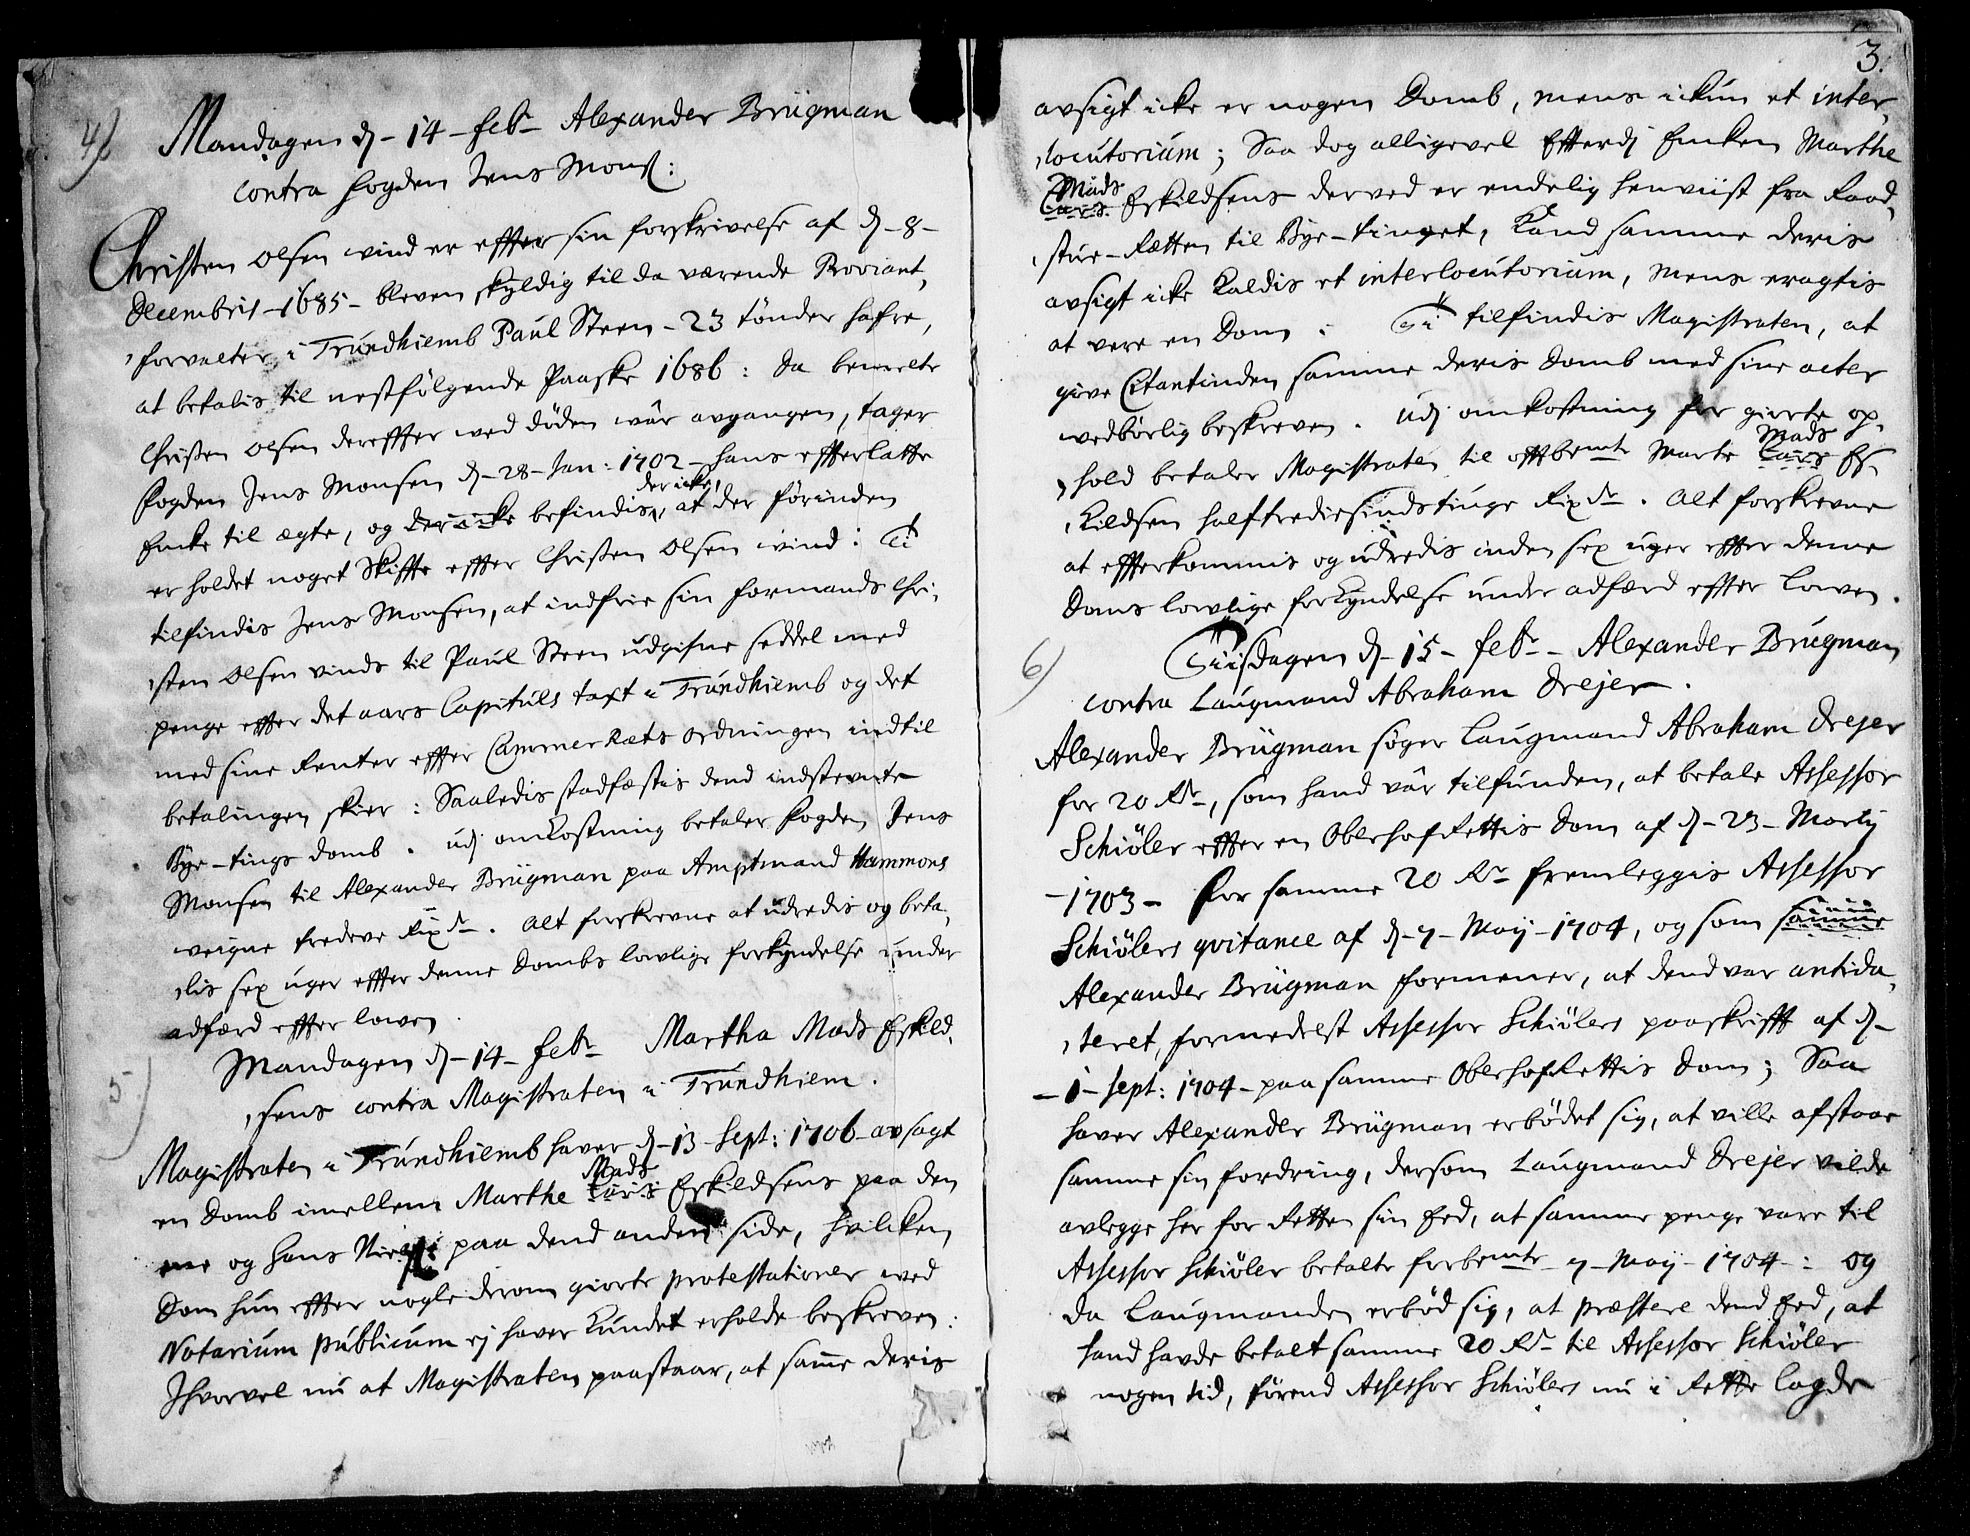 4)
Mandagen d. 14 febr. Alexander Brügman
contra fogden Jens Mons:
Christen Olsen wind er effter sin forskrivelse af d. 8
Decembris 1685 bleven skyldig til da værende Proviant,
forvalter i Trundhiemb Paul Steen 23 tønder hafre,
at betalis til nestfølgende Paaske 1686: da bemelte
Christen Olsen dereffter wed døden war avgangen, tager
fogden Jens Monsen d. 28 Jan: 1702 hans effterlatte
Encke til ægte, og der icke befindis, der icke at der førinden
er holdet noget Skiffte effter Christen Olsen wind: Ti
tilfindis Jens Monsen, at indfrie sin formands Chri,
sten Olsen vinds til Paul Steen udgifne seddel med
penge effter det aars Capituls taxt i Trundhiemb og det
med sine Renter effter Cammer Rets ordningen indtil
betalingen skier: Saaledis stadfæstis dend indstevnte
Bye-tings domb. udj omkostning betaler fogden Jens
Monsen til Alexander Brügman paa Amptmand Hammons
weigne tredeve Rixdr. Alt forskrevne at udredis og beta,
lis sex uger effter denne Dombs lovlige forkyndelse under
adfærd effter lowen.
5)
Mandagen d. 14 febr. Martha Mads Eskild,
sens contra Magistraten i Trundhiem.
Magistraten i Trundhiemb haver d. 13 Sept: 1706 avsagt
en Domb imellem Marthe Lars Mads Eskildsens paa den
ene og Hans paa dend anden side, hvilcken
Dom hun effter nogle derom giorte protestationer med
Notarium publicum ej haver kundet erholde beskreven:
Ihvorvel nu at Magistraten paastaar, at samme deris
3.
avsigt icke er nogen Domb, mens ickun et inter,
locutorium; Saa dog alligevel Efterdj Encken Marthe
Lars Mads Eskildsens derved er endelig henviist fra Raad,
stue-Retten til Bye-tinget, kand samme deris
avsigt icke kaldis et interlocutorium, mens eragtis
at vere en Dom: Ti tilfindis Magistraten, at
give Citantinden samme deris Domb med sine acter
wedbørlig beskreven. udj omkostning for giorte op,
hold betaler Magistraten til offtbemte Marte Lars Mads Es,
kildsen halftrediesindstiuge Rixdr. Alt forskrevne
at effterkommis og udredis inden sex uger effter denne
Doms lowlige forkyndelse under adfærd effter Lowen.
6)
Tiisdagen d. 15 febr. Alexander Brügman
contra Laugmand Abraham Drejer.
Alexander Brügman søger Laugmand Abraham Drejer
for 20 Rdr, som hand var tilfunden, at betale Assessor
Schiøler effter en OberhofRettis Dom af d. 23 Martij
1703 for samme 20 Rdr fremleggis Assessor
Schiølers qvitance af d. 7 Maij 1704, og som samme
Alexander Brügman formener, at dend var antida,
teret, formedelst Assessor Schiølers paaskrifft af d.
1 Sept: 1704 paa samme OberhofRettis Dom; Saa
haver Alexander Brügman erbødet sig, at ville afstaae
samme sin fordring, dersom Laugmand Drejer vilde
avlegge her for Retten sin Eed, at samme penge vare til
Assessor Schiøler betalte forbemte 7 Maij 1704: og
da Laugmanden erbød sig, at præstere dend Eed, at
hand havde betalt samme 20 Rdr til Assessor Schiøler
nogen tid, førend Assessor Schiølers nu i Rette lagde